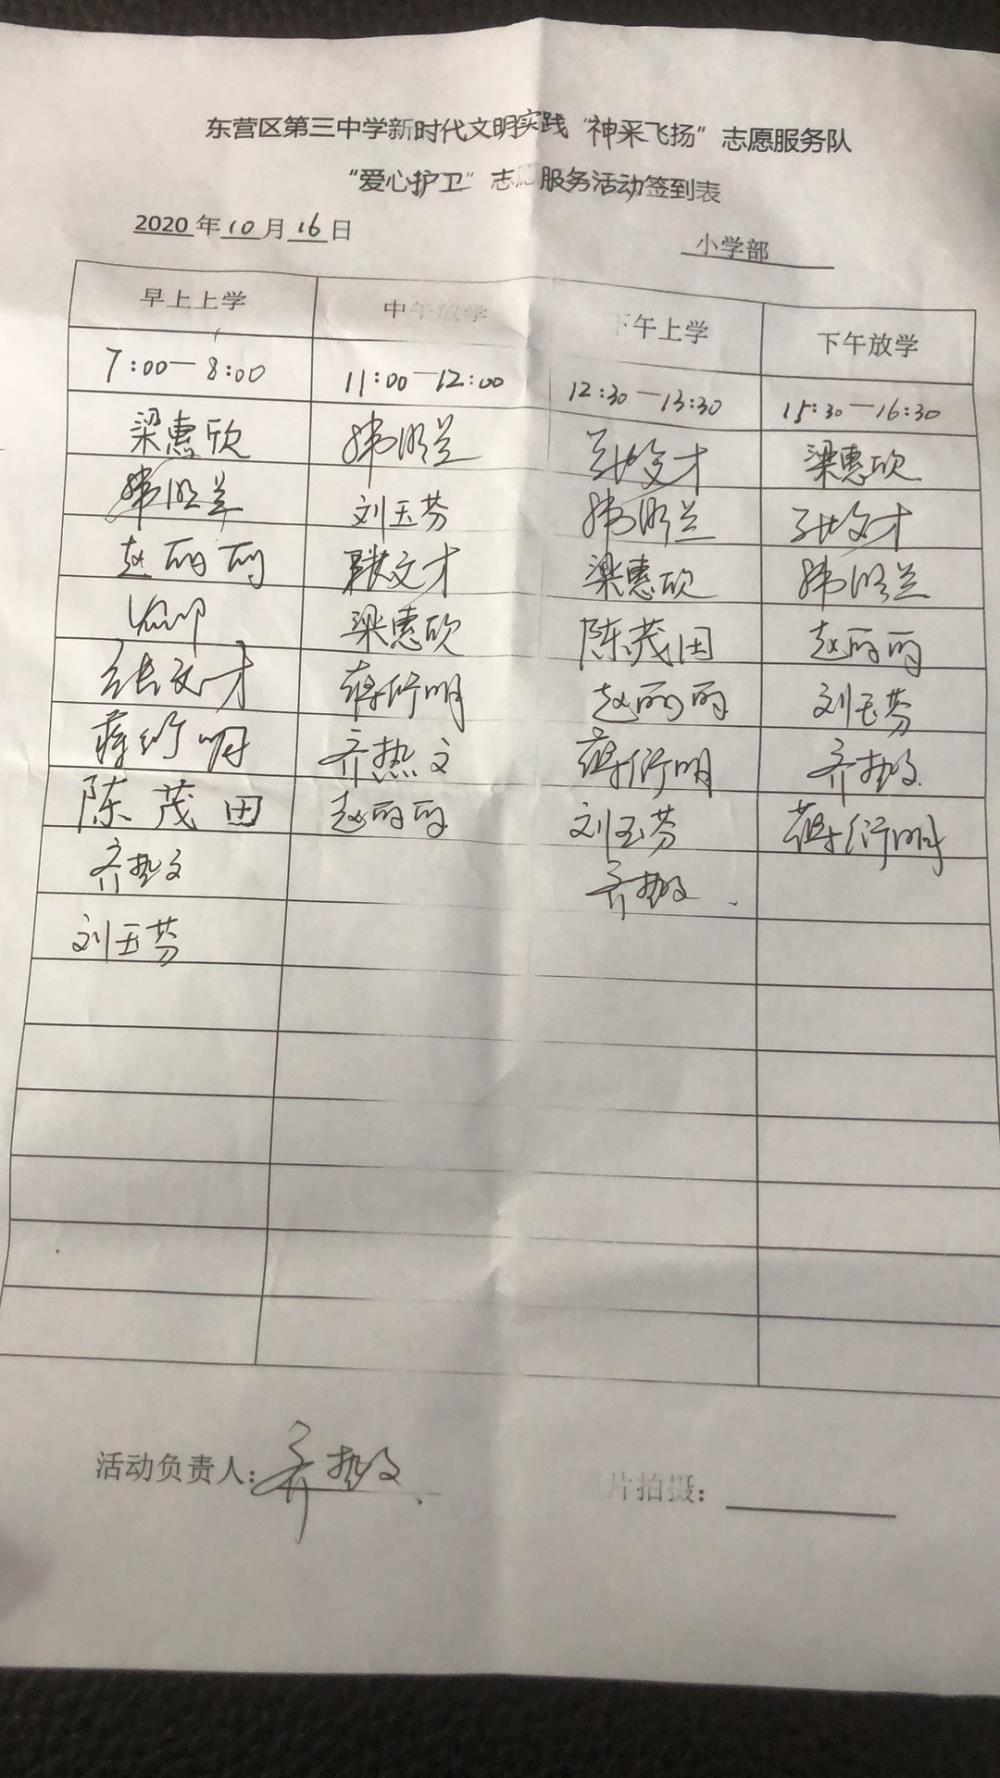 东营区第三中学新时代文明实践“神采飞扬”志愿服务队
“爱心护卫”志愿服务活动签到表
2020年10月16日 小学部
早上上学 中午放学 下午上学 下午放学
7:00—8:00 11:00—12:00 12:30—13:30 15:30—16:30
梁惠欣 韩明兰 张文才 梁惠欣
韩明兰 刘玉芬 韩明兰 张文才
赵丽丽 张文才 梁惠欣 韩明兰
梁惠欣 陈茂田 赵丽丽
张文才 蒋衍明 赵丽丽 刘玉芬
蒋衍明 齐热文 蒋衍明 齐热文
陈茂田 赵丽丽 刘玉芬 蒋衍明
齐热文 齐热文
刘玉芬
活动负责人：齐热文 片拍摄：